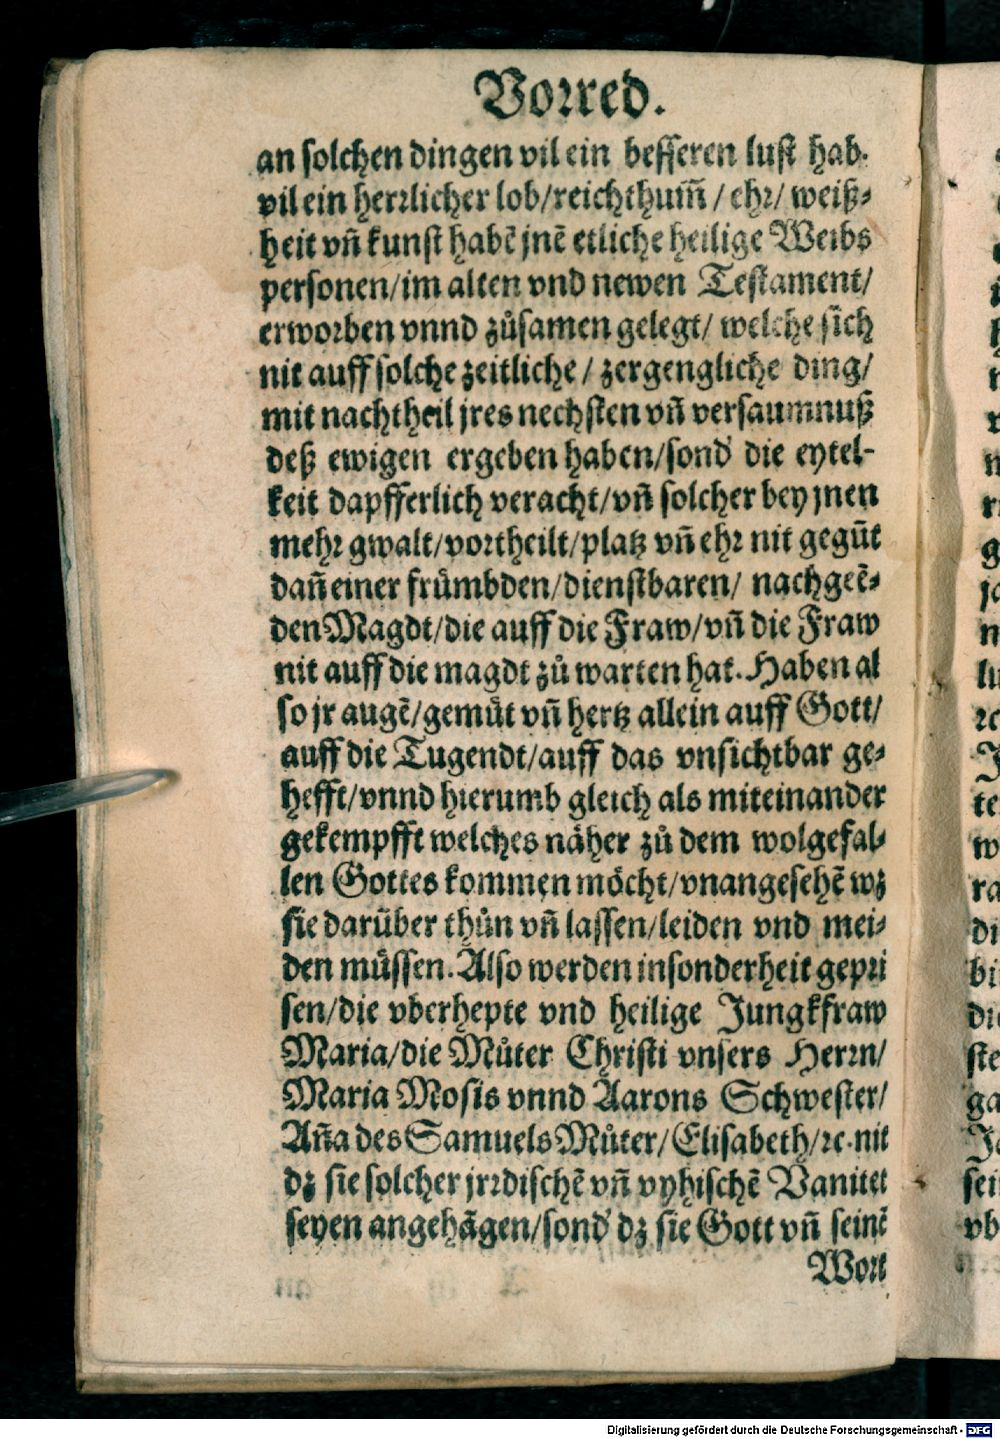 Vorred.
an solchen dingen vil ein besseren lust hab.
vil ein herrlicher lob/reichthum̃/ehr/weiß-
heit vñ kunst habẽ jnẽ etliche heilige Weibs
personen/im alten vnd newen Testament/
erworben vnnd zůsamen gelegt/ welche sich
nit auff solche zeitliche/ zergengliche ding/
mit nachtheil jres nechsten vñ versaumnuß
deß ewigen ergeben haben/sond' die eytel-
keit dapfferlich veracht/vñ solcher bey jnen
mehr gwalt/vortheilt/platz vñ ehr nit gegũt
dañ einer frümbden/dienstbaren/ nachgeẽ-
den Magdt/die auff die Fraw/vñ die Fraw
nit auff die magdt zů warten hat. Haben al
so jr augẽ/gemüt vñ hertz allein auff Gott/
auff die Tugendt/auff das vnsichtbar ge-
hefft/vnnd hierumb gleich als miteinander
gekempfft welches näher zů dem wolgefal-
len Gottes kommen möcht/vnangesehẽ wz
sie darüber thůn vñ lassen/leiden vnd mei-
den müssen. Also werden insonderheit gepri
sen/die vberhepte vnd heilige Jungkfraw
Maria/die Můter Christi vnsers Herrn/
Maria Mosis vnnd Aarons Schwester/
Aña des Samuels Můter/Elisabeth/ꝛc. nit
dz sie solcher jrrdischẽ vñ vyhischẽ Vanitet
seyen angehãgen/sond' dz sie Gott vñ seinẽ
Wort
Digitalisierung gefördert durch die Deutsche Forschungsgemeinschaft - DFG